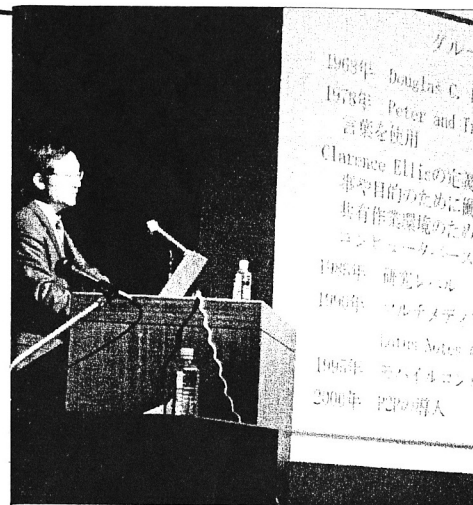 グルー
1968年 Douglas C.
1978年 Peter and Tr
言葉を使用
Clarence Ellisの定義
事や目的のために働
共有作業環境のため
コンピュータベース
1985年 研究レベル
1990年 マルチメディ
Lotus Notes
1995年 モバイルコン
2000年 P2Pの導入